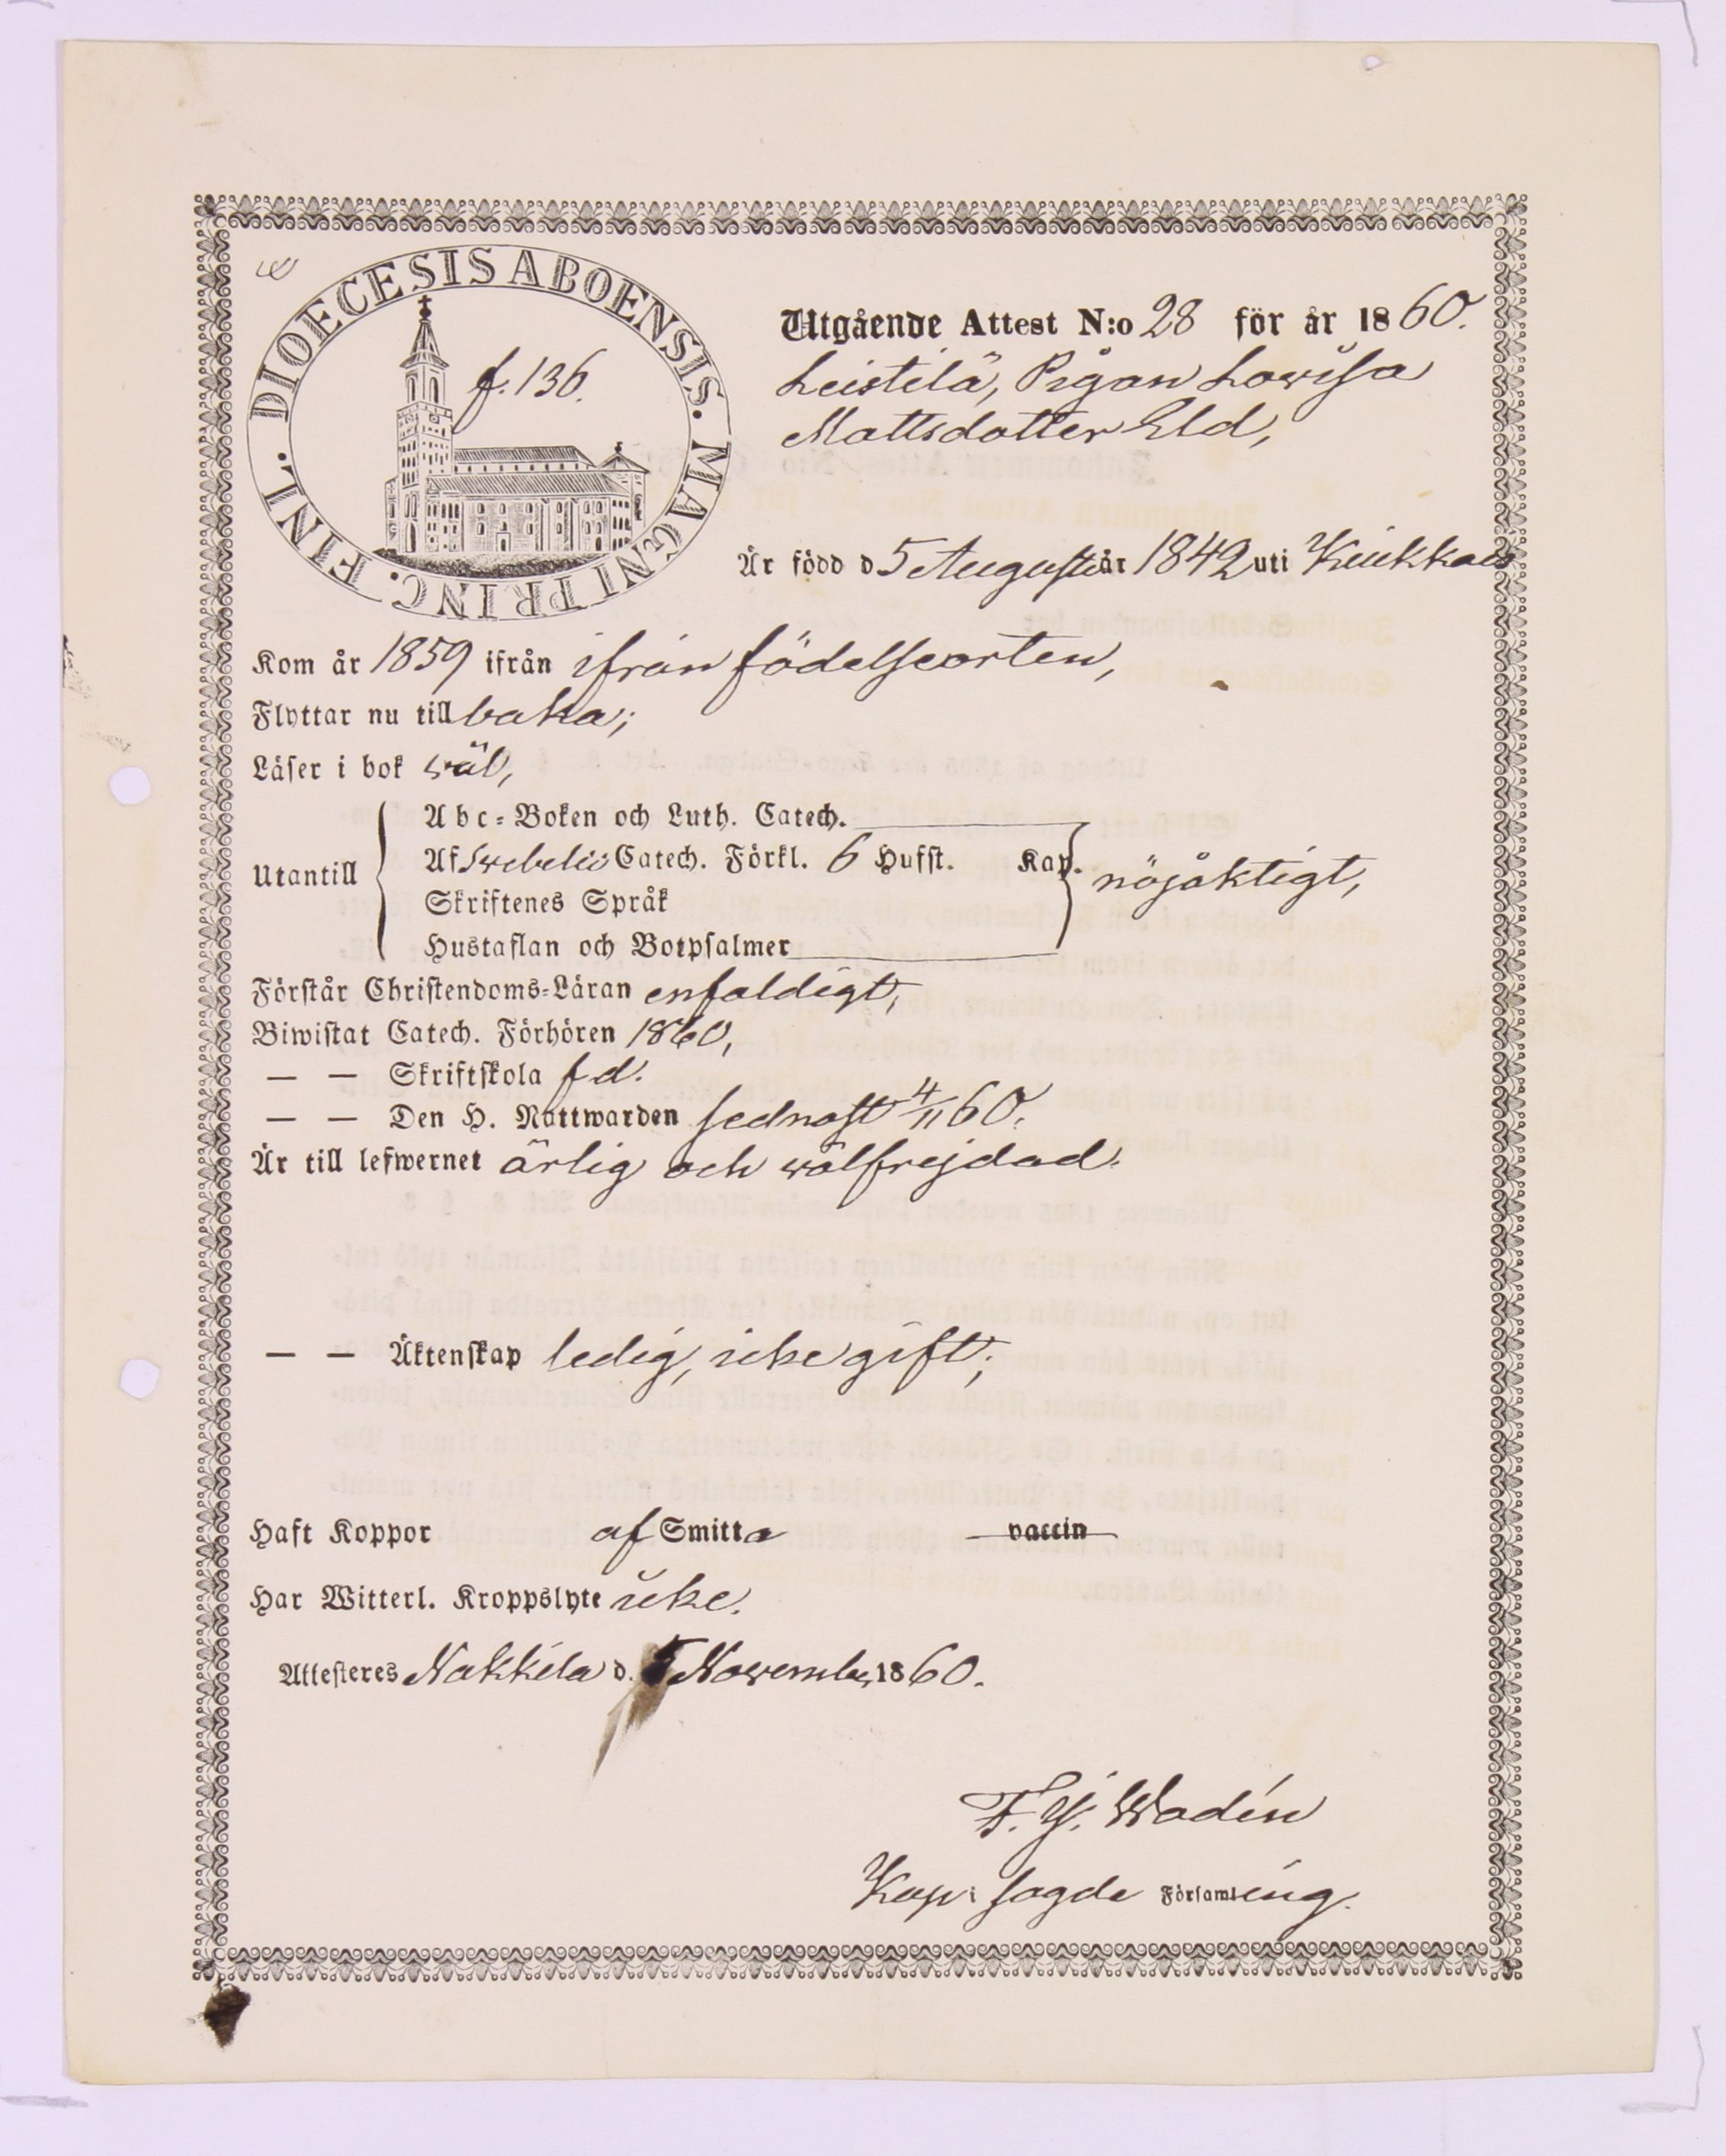 DIOECESIS ABOENSIS. MAGNI PRINC. FINL.
f. 136.
Utgående Attest N:o 28 för år 1860.
Leistilä, Pigan Lovisa
Mattsdotter Eld,
Är född d 5 Augusti år 1842 uti Kiukkais
Kom år 1859 ifrån ifrån födelseorten,
Flyttar nu till baka;
Läser i bok wäl,
Utantill
Abc-Boken och Luth. Catech.
Af Swebelii Catech. Förkl. 6 Hufst. Kap.
nöjaktigt,
Skriftenes Språk
Hustaflan och Botpsalmer
Förstår Christendoms-Läran enfaldigt,
Biwistat Catech. Förhören 1860,
— — Skriftskola f d.
— — Den H. Nattwarden sednast 4/11 60.
Är till lefwernet ärlig och wälfrejdad.
— — Äktenskap ledig, icke gift;
Haft Koppor af Smitta vaccin
Har Witterl. Kroppslyte icke.
Attesteres Nakkila d. 5 November 1860.
F. J. Wadén
Kap. i sagde Församling.